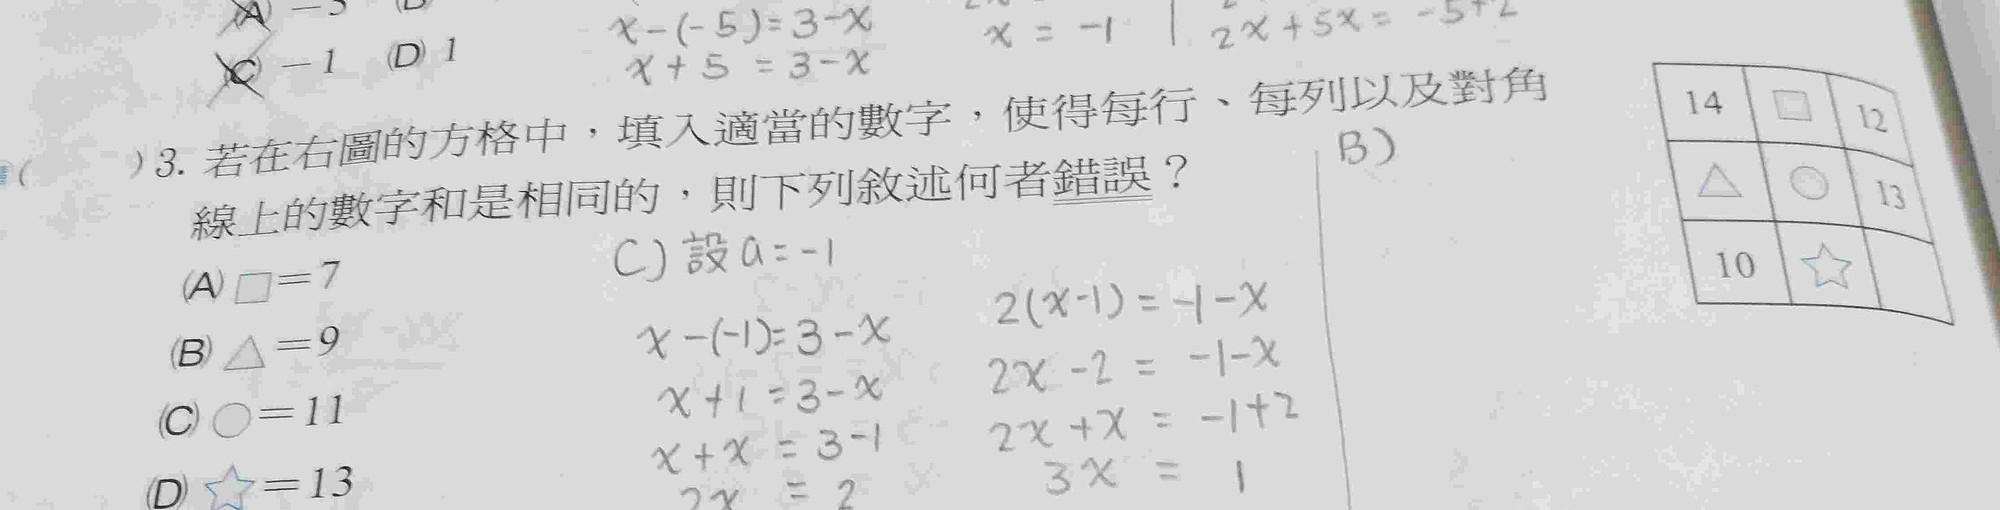 (C) −1 (D) 1
x-(-5)=3-x
x+5 =3-x
x = -1
2x+5x= -5+2
( )3. 若在右圖的方格中，填入適當的數字，使得每行、每列以及對角
線上的數字和是相同的，則下列敘述何者錯誤？
(A) □＝7
(B) △＝9
(C) ○＝11
(D) ☆＝13
C) 設 a=-1
x-(-1)=3-x
x+1=3-x
x+x =3-1
2x = 2
2(x-1)=-1-x
2x-2 = -1-x
2x+x = -1+2
3x = 1
B)
14 □ 12
△ ○ 13
10 ☆